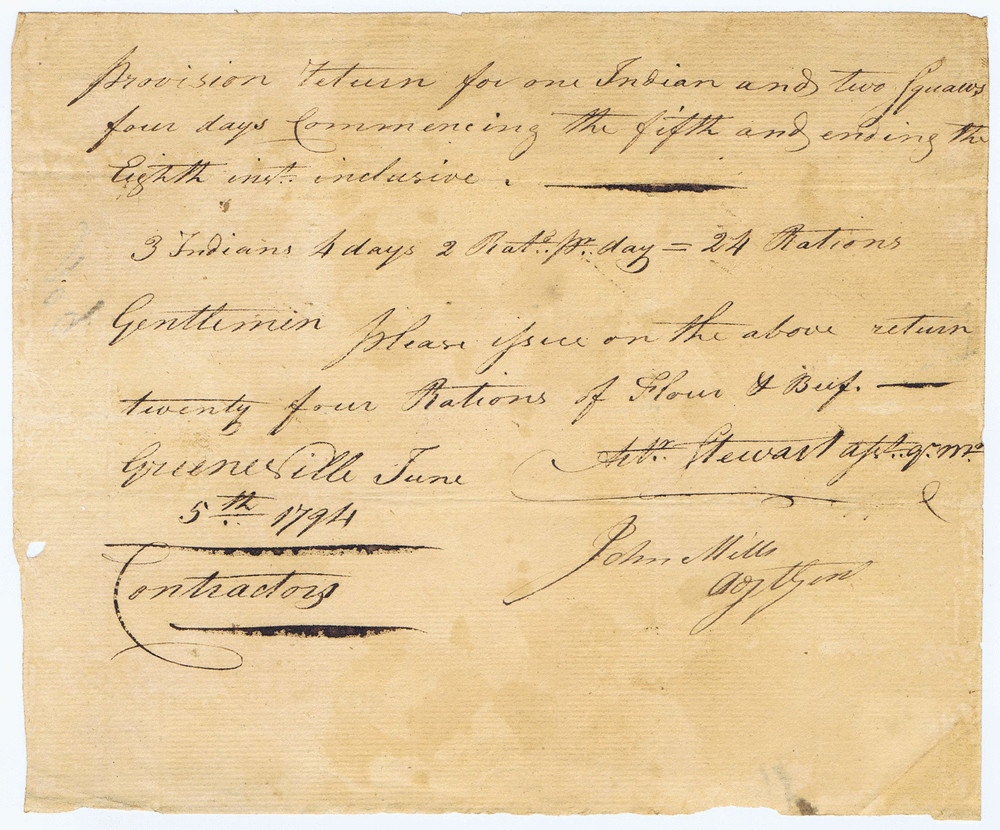 Provision return for one Indian and two Squaws
four days Commencing the fifth and ending the
Eighth inst. inclusive.
3 Indians 4 days 2 Rats. pr. day = 24 Rations
Gentlemin
please issue on the above return
twenty four Rations of Flour & Beef.
Greeneville June
5th 1794
Stewart asst. q. mr.
John Mills
Adjt Gen
Contractors